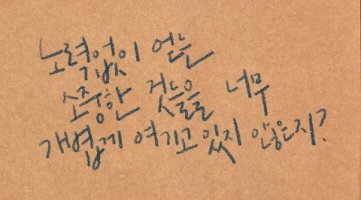 노력없이 얻은
소중한 것들을 너무
가볍게 여기고 있지 않은지?